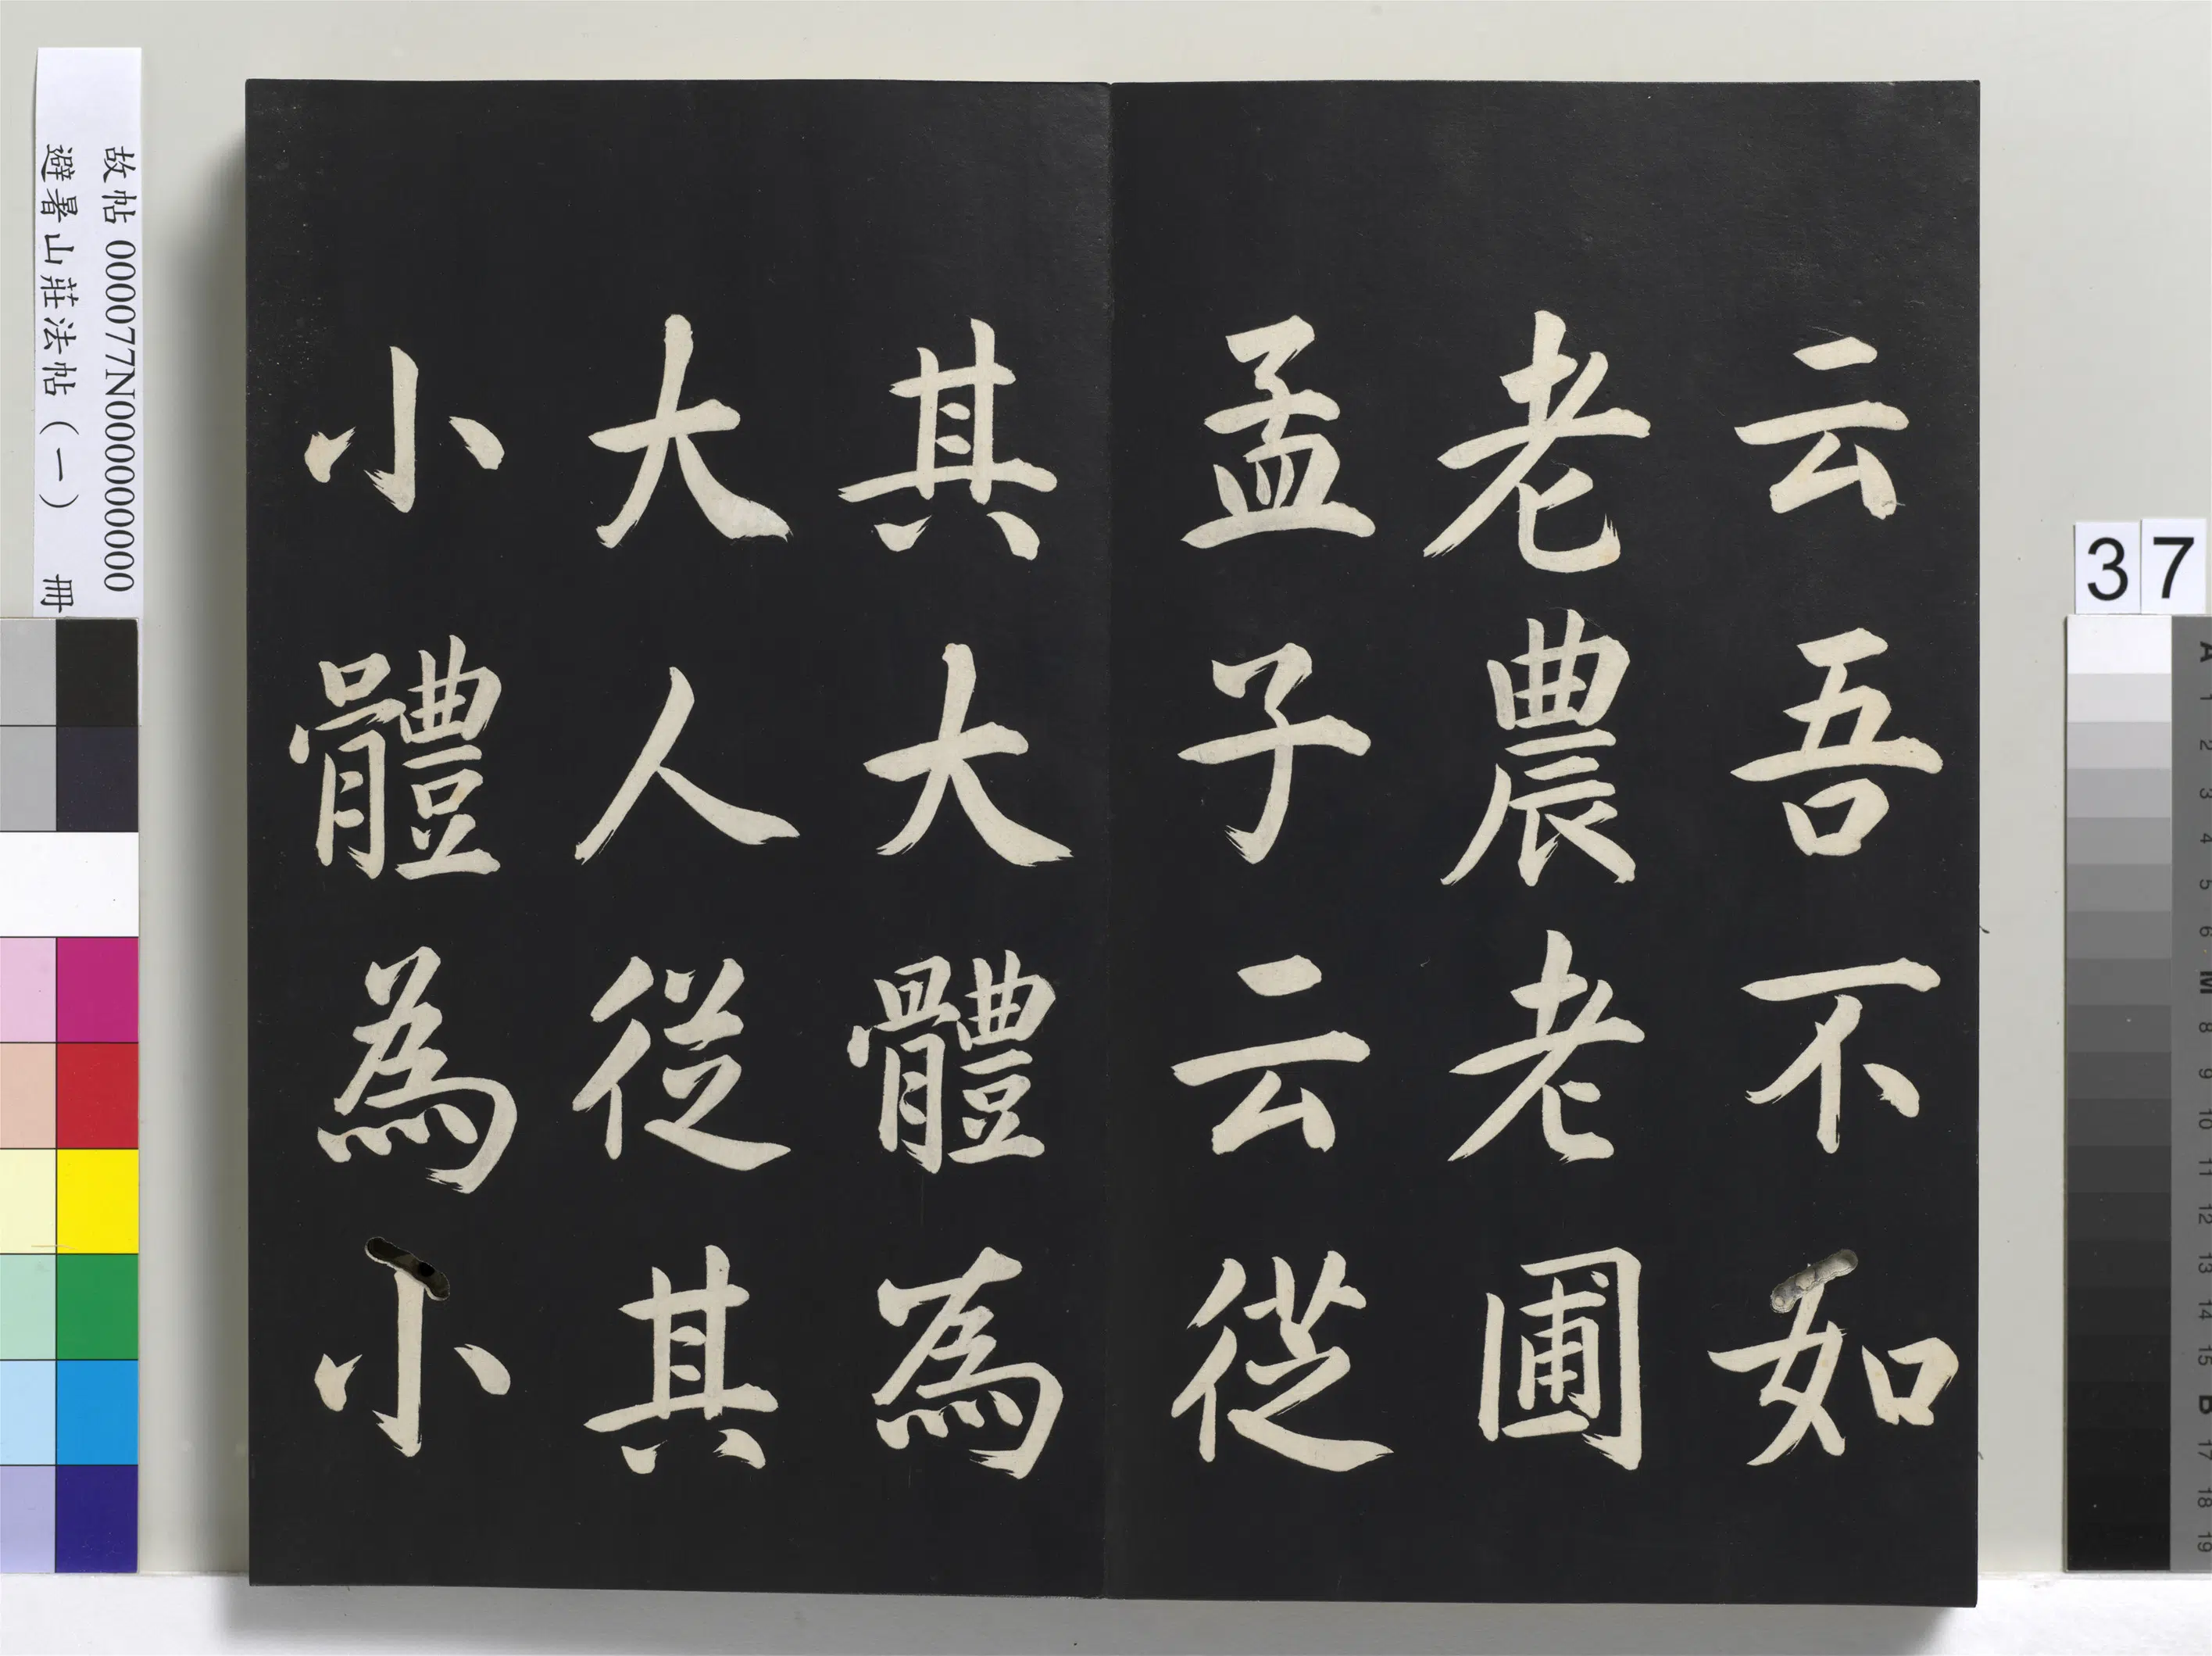 云吾不如
老農老圃
孟子云從
其大體為
大人從其
小體為小
故帖 000077N000000000
避暑山莊法帖（一） 冊
37
A 1 2 3 4 5 6 M 8 9 10 11 12 13 14 15 B 17 18 19